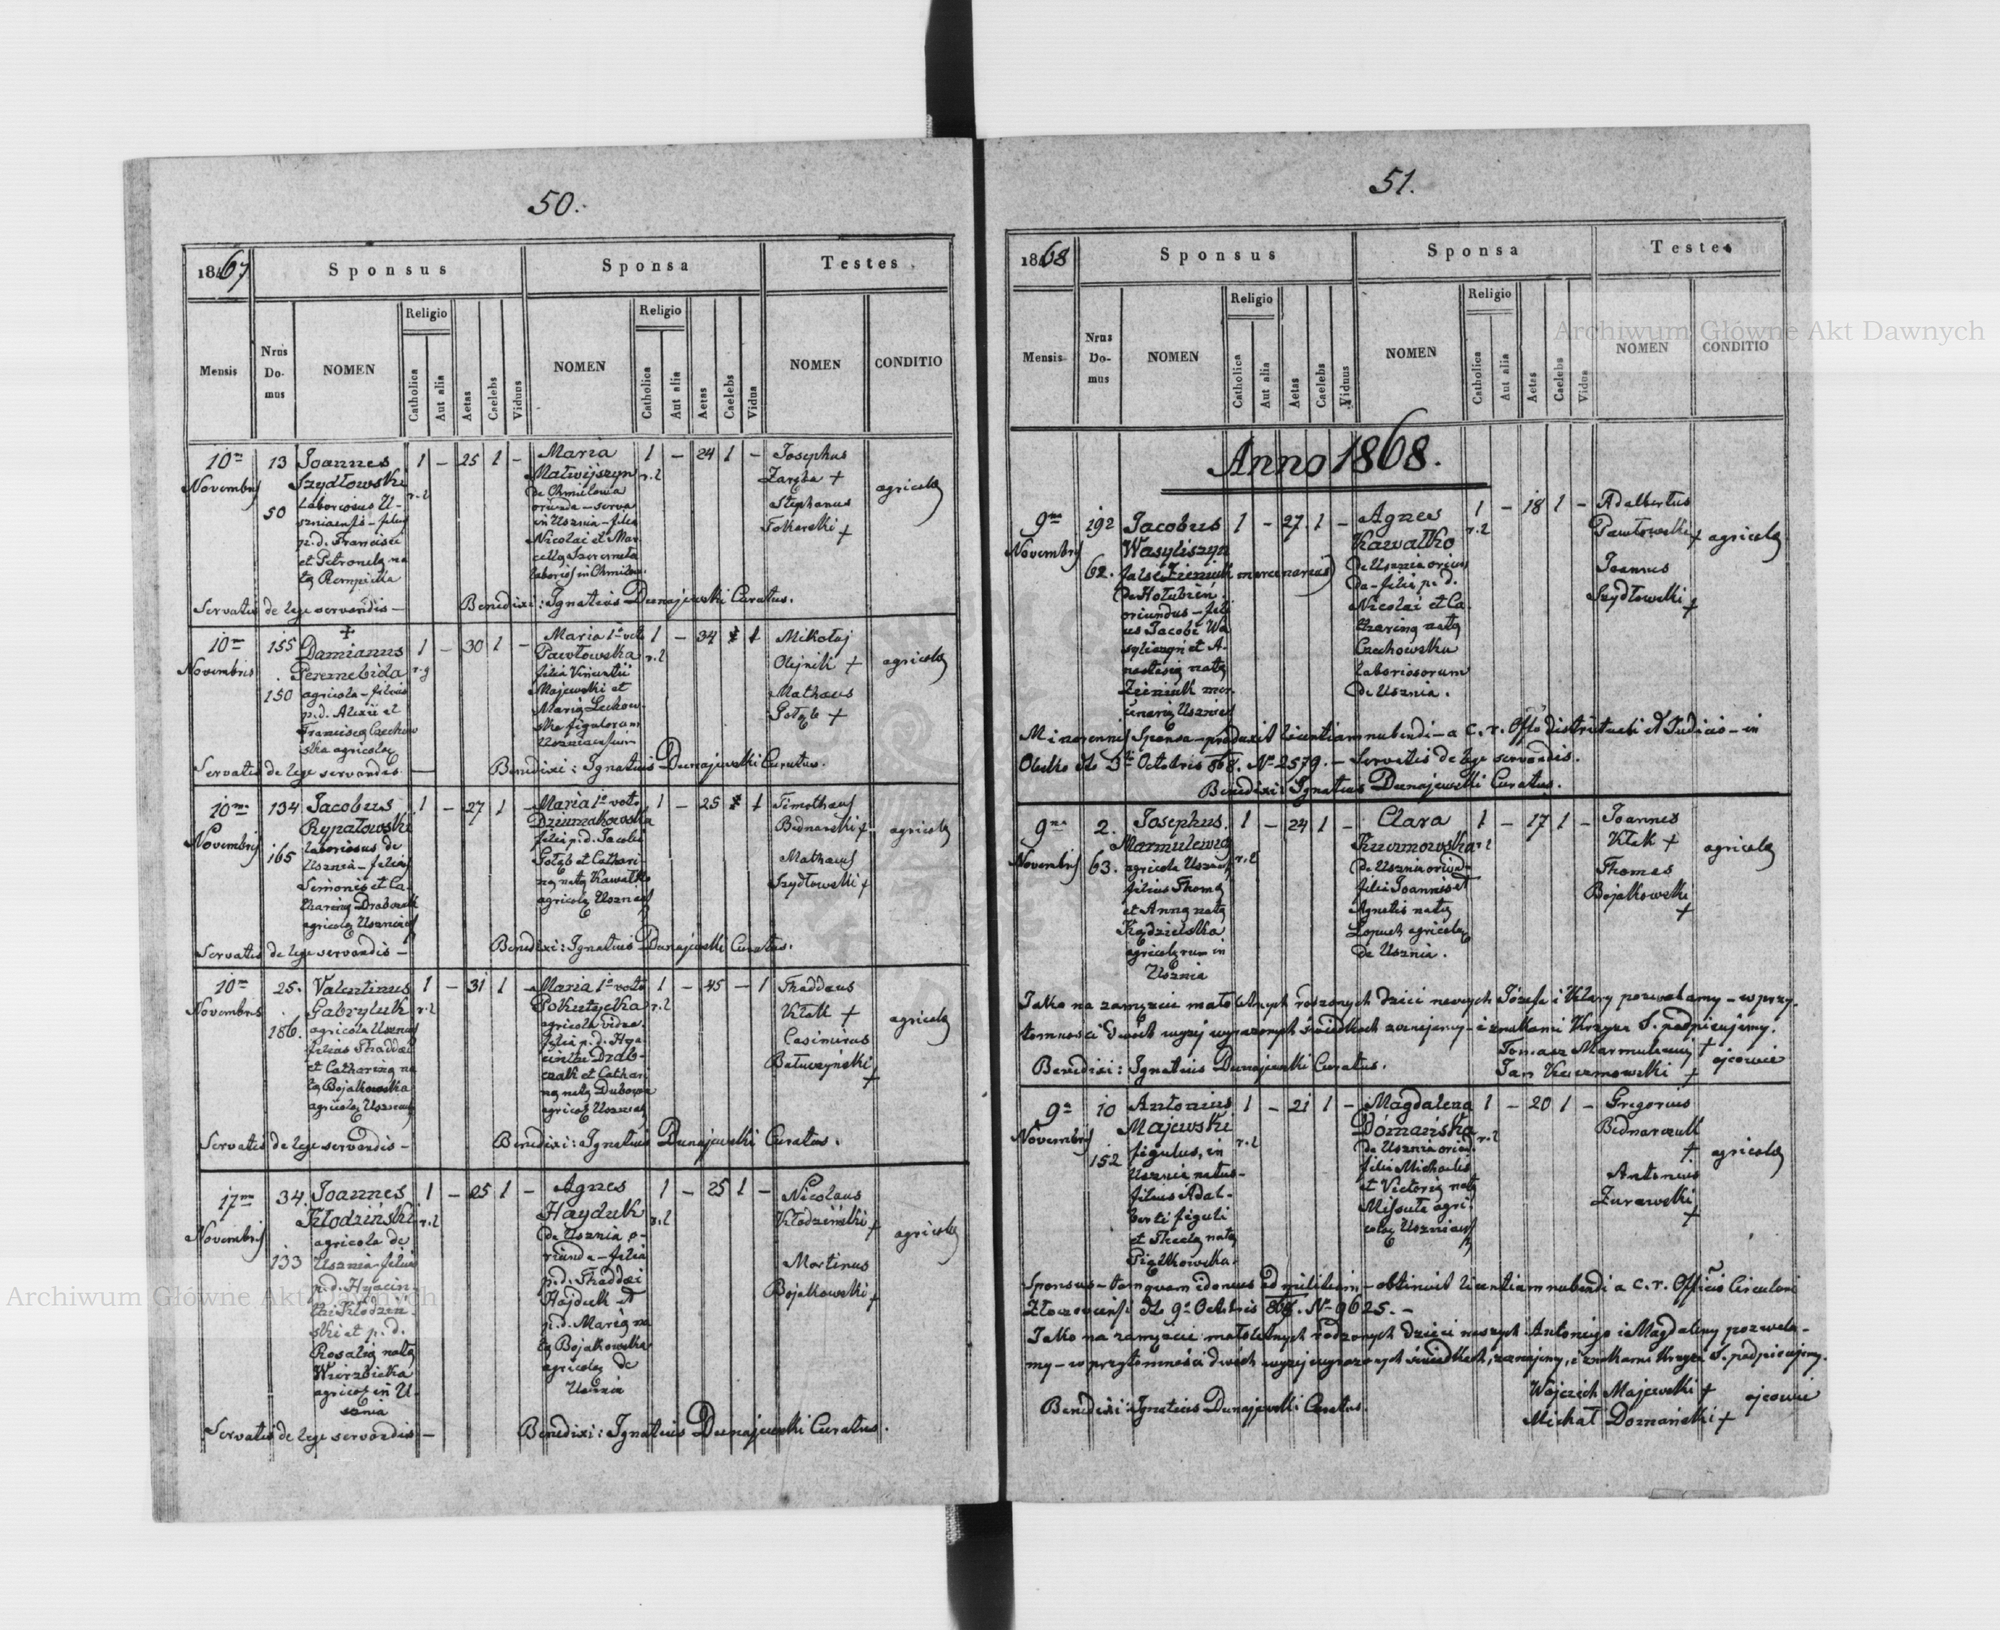 50.
1867
Sponsus
Sponsa
Testes
Mensis
Nrus Do- mus
NOMEN
Religio
Catholica
Aut alia
Aetas
Caelebs
Viduus
NOMEN
Religio
Catholica
Aut alia
Aetas
Caelebs
Vidua
NOMEN
CONDITIO
10ma Novembris
13
50
Joannes
Szydłowski
laboriosus U-
szniensis – filius
p.d. Francisci
et Petronelę na-
tę Rempiłła
1 r.l
–
25
1
–
Maria
Matwijszyn
de Chmielowa
oriunda – serva
in Usznia – filia
Nicolai et Mar-
cellę
1 r.l
–
24
1
–
Josephus
Zaręba +
Stephanus
Tokarski +
agricolę
Servatis de lege servandis –
Benedixi: Ignatius Dunajewski Curatus.
10ma Novembris
155
150
+
Damianus
Peremebida
agricola – filius
p.d. Alexii et
Franciscę Czechow
ska agricolę
1 r.g
–
30
1
–
Maria 1o voto
Pawłowska
filia Vincentii
Majewski et
Marię Lechow-
ska figulorum
Uszniensium
1 r.l
–
34
1
Mikołaj
Olejnik +
Mathaeus
Gołąb +
agricolę
Servatis de lege servandis –
Benedixi: Ignatius Dunajewski Curatus.
10ma Novembris
134
165
Jacobus
Rypałowski
laboriosus de
Usznia – filius
Simonis et Ca-
tharinę
agricolę Uszniens
1
–
27
1
–
Maria 1o voto
Dziumakowska
filia p.d. Jacobi
Gołąb et Cathari-
nę natę Kawałko
agricolę Uszniens
1
–
25
1
Timotheus
Bednarski +
Mathaeus
Szydłowski +
agricolę
Servatis de lege servandis –
Benedixi: Ignatius Dunajewski Curatus.
10ma Novembris
25.
186.
Valentinus
Gabryluk
agricola Uszniens
filius Thaddaei
et Catharinę na
tę Bojałkowska
agricolę Uszniens
1 r.l
–
31
1
–
Maria 1o voto
Pokutycka
agricola vidua
filia p.d. Hya-
cinthi Drab-
czak et Cathari
nę natę Dubowa
agricol Uszniens
1 r.l
–
45
–
1
Thaddaeus
Kłak +
Casimirus
Bałuczyński +
agricolę
Servatis de lege servandis –
Benedixi: Ignatius Dunajewski Curatus.
17ma Novembris
34.
133
Joannes
Kłodziński
agricola de
Usznia filius
p.d. Hyacin-
thi Kłodziń-
ski et p.d.
Rosalię natę
Wierzbicka
agricol in U-
sznia
1 r.l
–
25
1
–
Agnes
Hayduk
de Usznia o-
riunda – filia
p.d. Thaddaei
Hajduk et
p.d. Marię na
tę Bojałkowska
agricolę de
Usznia
1 r.l
–
25
1
–
Nicolaus
Kłodziński +
Martinus
Bojałkowski +
agricolę
Servatis de lege servandis –
Benedixi: Ignatius Dunajewski Curatus.
51.
1868
Sponsus
Sponsa
Testes
Mensis
Nrus Do- mus
NOMEN
Religio
Catholica
Aut alia
Aetas
Caelebs
Viduus
NOMEN
Religio
Catholica
Aut alia
Aetas
Caelebs
Vidua
NOMEN
CONDITIO
Anno 1868.
9na Novembris
192
62.
Jacobus
Wasyliszyn
(false Zieniuk mercenarius)
de Hołubień
oriundus – fili-
us Jacobi Wa-
syliszyn et A-
nastasię natę
Zieniuk mer-
cenarię Uszniens
1
–
27.
1
–
Agnes
Kawałko
de Usznia oriun-
da – filia p.d.
Nicolai et Ca-
tharinę natę
Czechowska
laboriosorum
de Usznia.
1 r.l
–
18
1
–
Adalbertus
Pawłowski +
Joannes
Szydłowski +
agricolę
Minorennis Sponsa – produxit licentiam nubendi – a c.r. Offo districtuali et Judicio – in
Olesko dto 5ta Octobris 868. No 2579. – Servatis de lege servandis.
Benedixi: Ignatius Dunajewski Curatus.
9na Novembris
2.
63.
Josephus
Marmulewicz
agricola Uszniens
filius Thomę
et Annę natę
Kądzielska
agricolęrum in
Usznia
1 r.l
–
24
1
–
Clara
Kuczmowska
de Usznia oriund-
filia Joannis et
Agnetis natę
Łopuch agricolę
de Usznia.
1 r.l
–
17
1
–
Joannes
Kłak +
Thomas
Bojałkowski +
agricolę
Jako na zamęźcie małoletnych rodzonych dzieci naszych Józefa i Klary pozwalamy – w przy-
tomności dwóch wyżej wyrażonych świadkach zeznajemy – i znakami Krzyża S. podpisujemy.
Tomasz Marmulewicz +
Jan Kuczmowski +
ojcowie
Benedixi: Ignatius Dunajewski Curatus.
9na Novembris
10
152
Antonius
Majewski
figulus, in
Usznia natus –
filius Adal-
berti figuli
et Theclę natę
Piątkowska.
1 r.l
–
21
1
–
Magdalena
Domańska
de Usznia oriund.
filia Michaelis
et Victorię natę
Missuła agri-
colę Uszniens
1 r.l
–
20
1
–
Gregorius
Bednarczuk +
Antonius
Żurawski +
agricolę
Sponsus – tamquam idoneus ad militiam – obtinuit licentiam nubendi a c.r. Officio Circulari
Złoczoviensi dto 9a Octobris 868. No 9625. –
Jako na zamęźcie małoletnych rodzonych dzieci naszych Antoniego i Magdaleny pozwala-
my – w przytomności dwóch wyżej wyrażonych świadkach, zeznajemy, i znakami Krzyża S. podpisujemy.
Wojciech Majewski +
Michał Domański +
ojcowie
Benedixi: Ignatius Dunajewski Curatus.
Archiwum Główne Akt Dawnych
Archiwum Główne Akt Dawnych